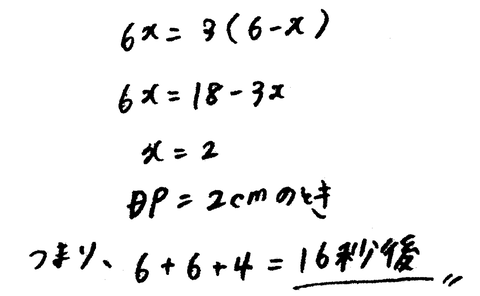 6x = 3(6-x)
6x = 18 - 3x
x = 2
DP = 2cm のとき
つまり、6+6+4 = 16秒後〃